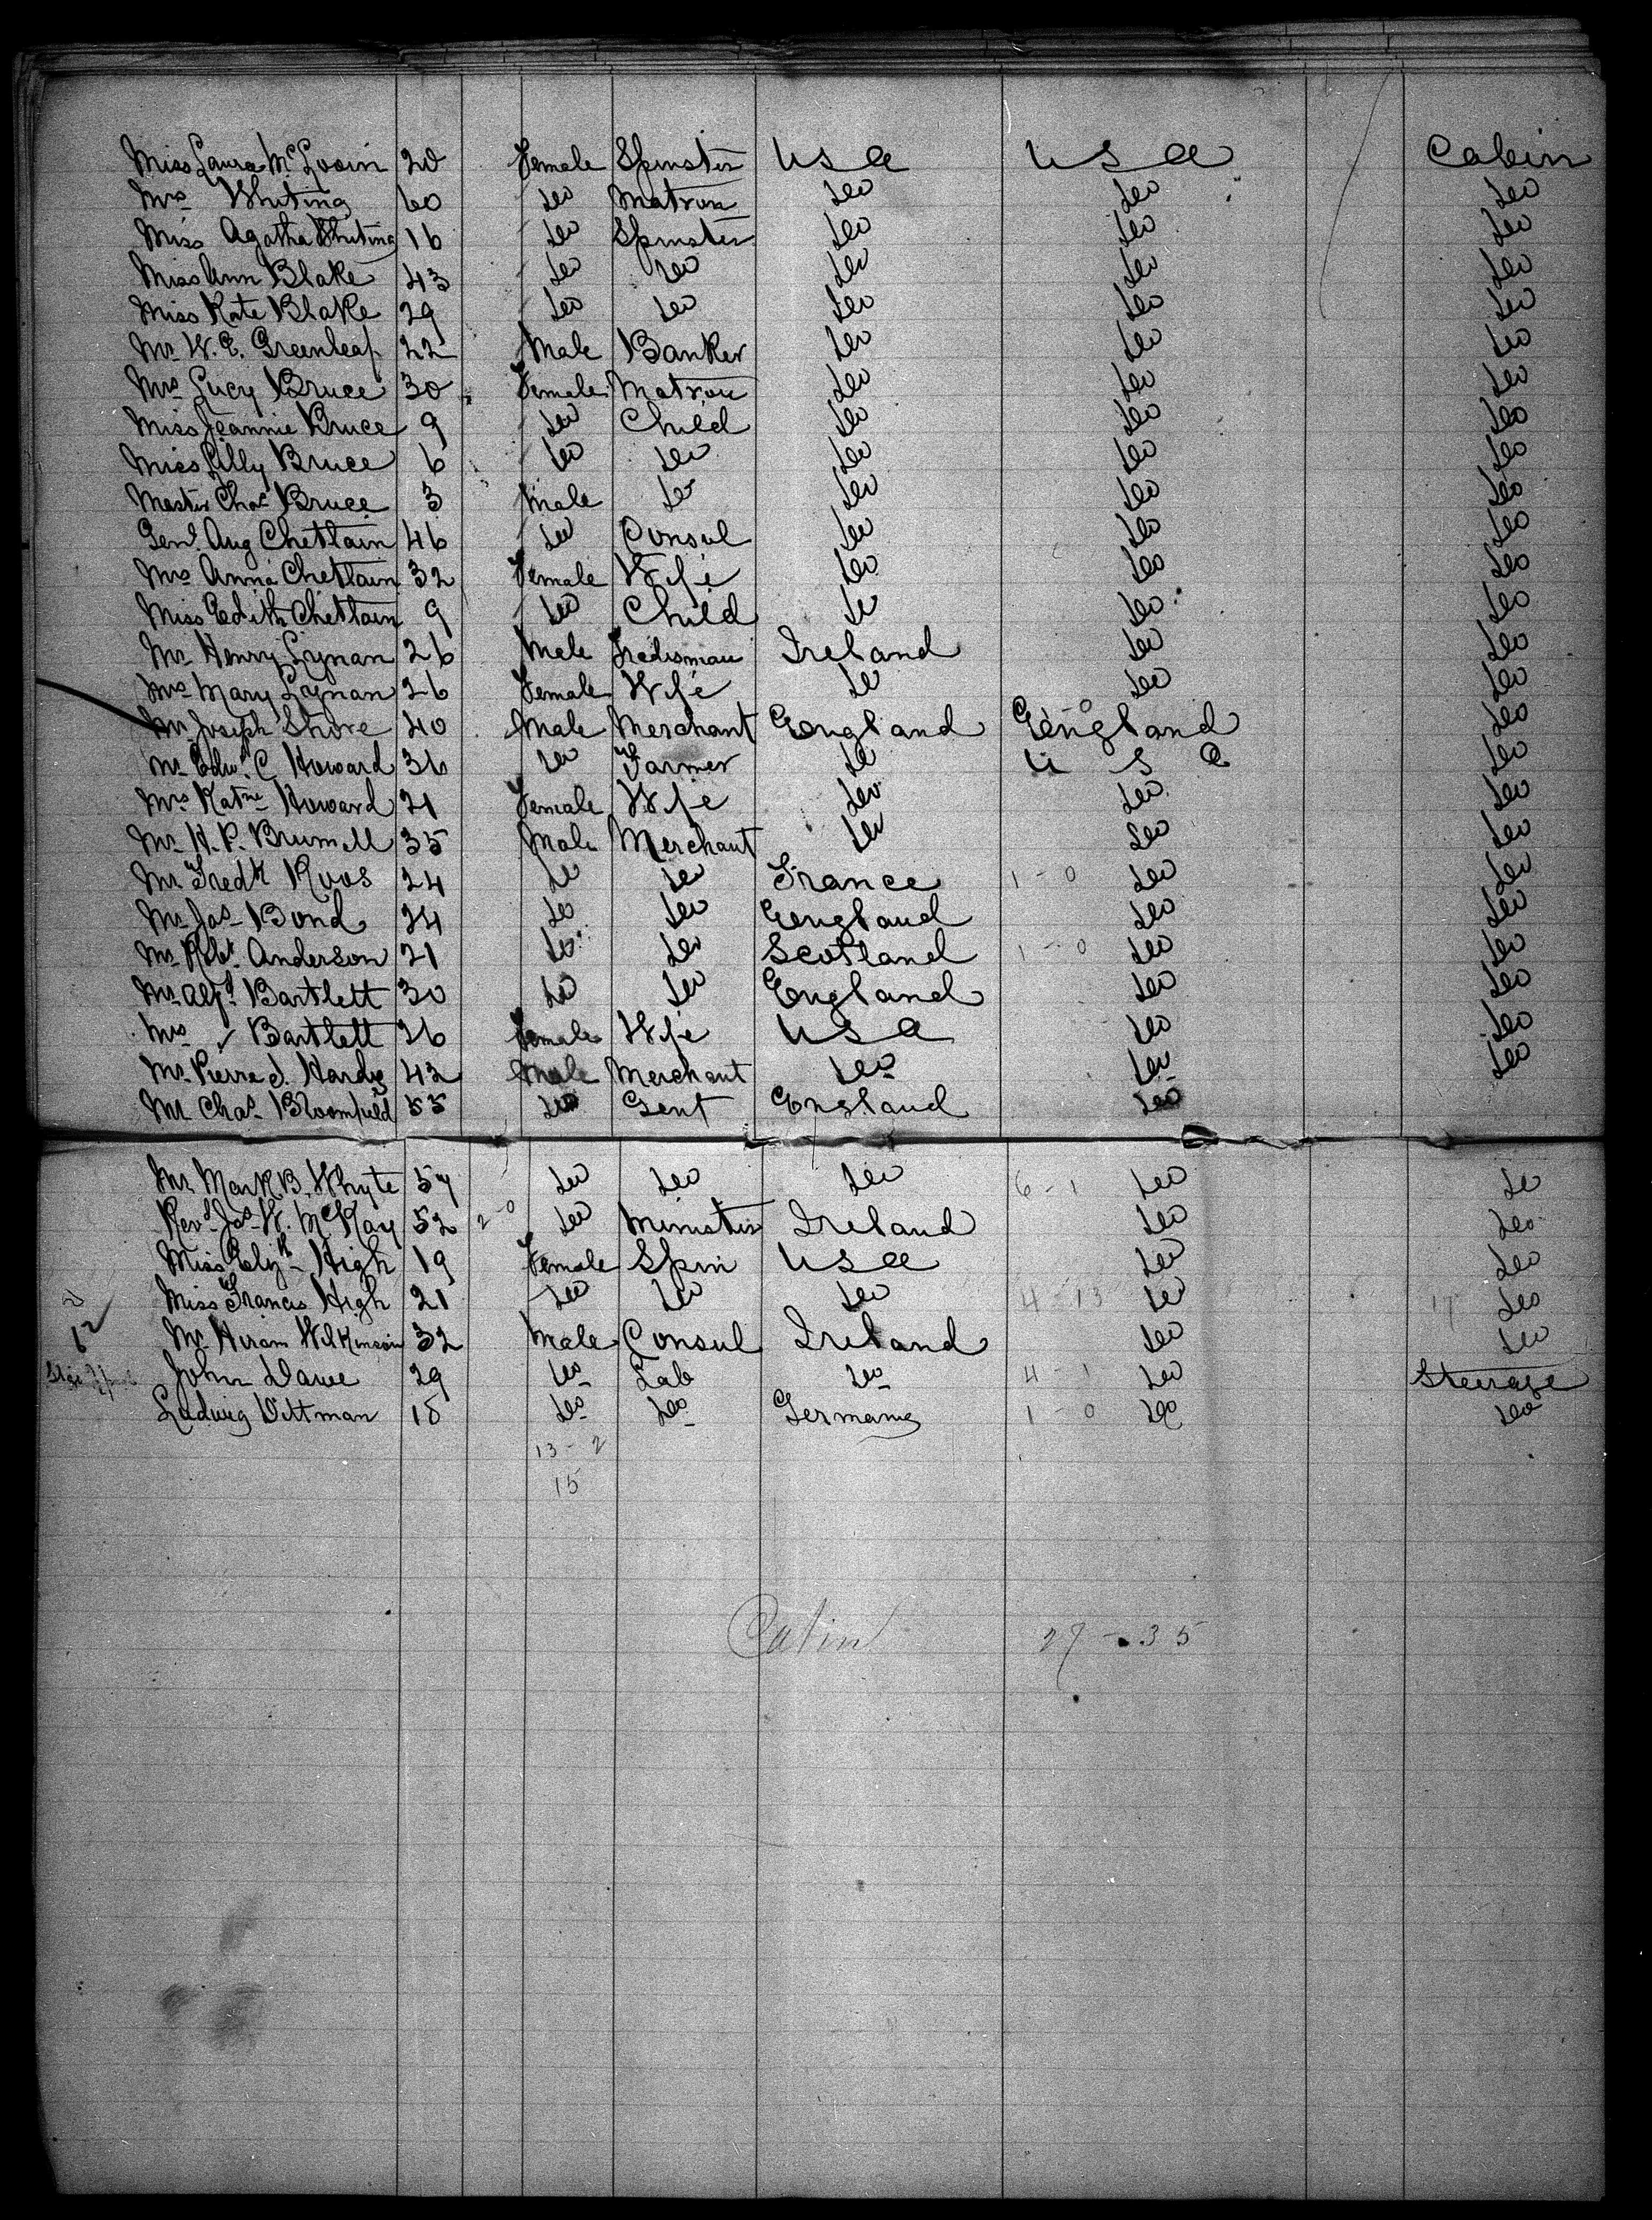 Miss Laura McLooin 20 Female Spinster U S A U S A Cabin
Mrs Whiting 60 Do Matron Do Do Do
Miss Agatha Whiting 16 Do Spinster Do Do Do
Miss Ann Blake 43 Do Do Do Do Do
Miss Kate Blake 29 Do Do Do Do Do
Mr W. E. Greenleaf 22 Male Banker Do Do Do
Mrs Lucy Bruce 30 Female Matron Do Do Do
Miss Jeannie Bruce 9 Do Child Do Do Do
Miss Lilly Bruce 6 Do Do Do Do Do
Master Chas Bruce 3 Male Do Do Do Do
Genl. Aug Chetlain 46 Do Consul Do Do Do
Mrs Anna Chetlain 32 Female Wife Do Do Do
Miss Edith Chetlain 9 Do Child Do Do Do
Mr Henry Lynan 26 Male Tradisman Ireland Do Do
Mrs Mary Lynan 26 Female Wife Do Do Do
Mr Joseph Shore 40 Male Merchant England England Do
Mr Edw. C. Howard 36 Do Farmer Do U S A Do
Mrs Katne Howard 21 Female Wife Do Do Do
Mr H. P. Brumell 35 Male Merchant Do Do Do
Mr Fredk Roos 24 Do Do France 1 - 0 Do Do
Mr Jas Bond 24 Do Do England Do Do
Mr Robt. Anderson 21 Do Do Scotland 1 - 0 Do Do
Mr Alfd. Bartlett 30 Do Do England Do Do
Mrs Bartlett 26 Female Wife U S A Do Do
Mr Pierre J. Hardy 42 Male Merchant Do Do Do
Mr Chas Bloomfield 55 Do Gent England Do
Mr. Mark B. Whyte 57 Do Do Do 6 - 1 Do Do
Revd Jas W. McKay 52 2 - 0 Do Minister Ireland Do Do
Miss Elizth High 19 Female Spin U S A Do Do
Miss Francis High 21 Do Do Do 4 - 13 Do 17 Do
Mr Hiram Wilkinson 32 Male Consul Ireland Do Do
John Dawe 29 Do Lab Do 4 - 1 Do Steerage
Ludwig Wittman 18 Do Do Germany 1 - 0 Do Do
13 - 2
15
Cabin 27 - 35